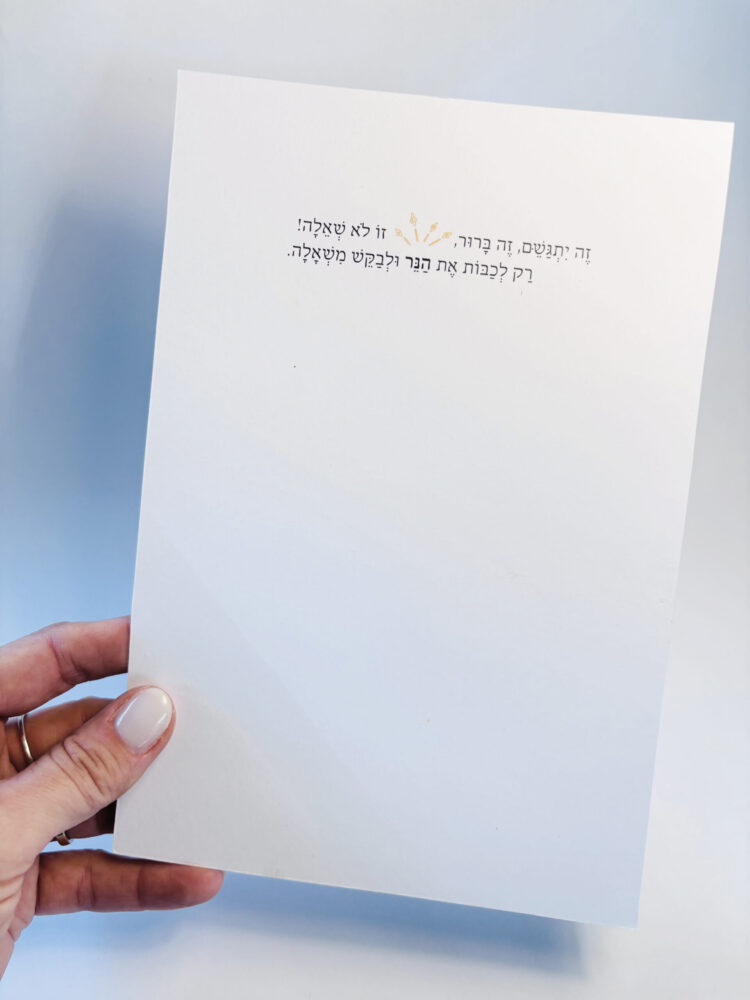 זֶה יִתְגַּשֵּׁם, זֶה בָּרוּר, זוֹ לֹא שְׁאֵלָה!
רַק לְכַבּוֹת אֶת הַנֵּר וּלְבַקֵּשׁ מִשְׁאָלָה.